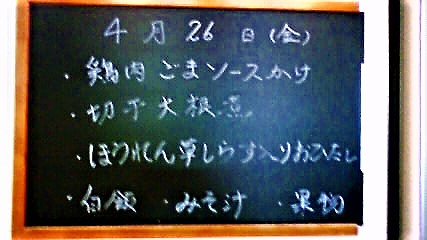 4月26日(金)
・鶏肉ごまソースかけ
・切干大根煮
・ほうれん草しらす入りおひたし
・白飯 ・みそ汁 ・果物